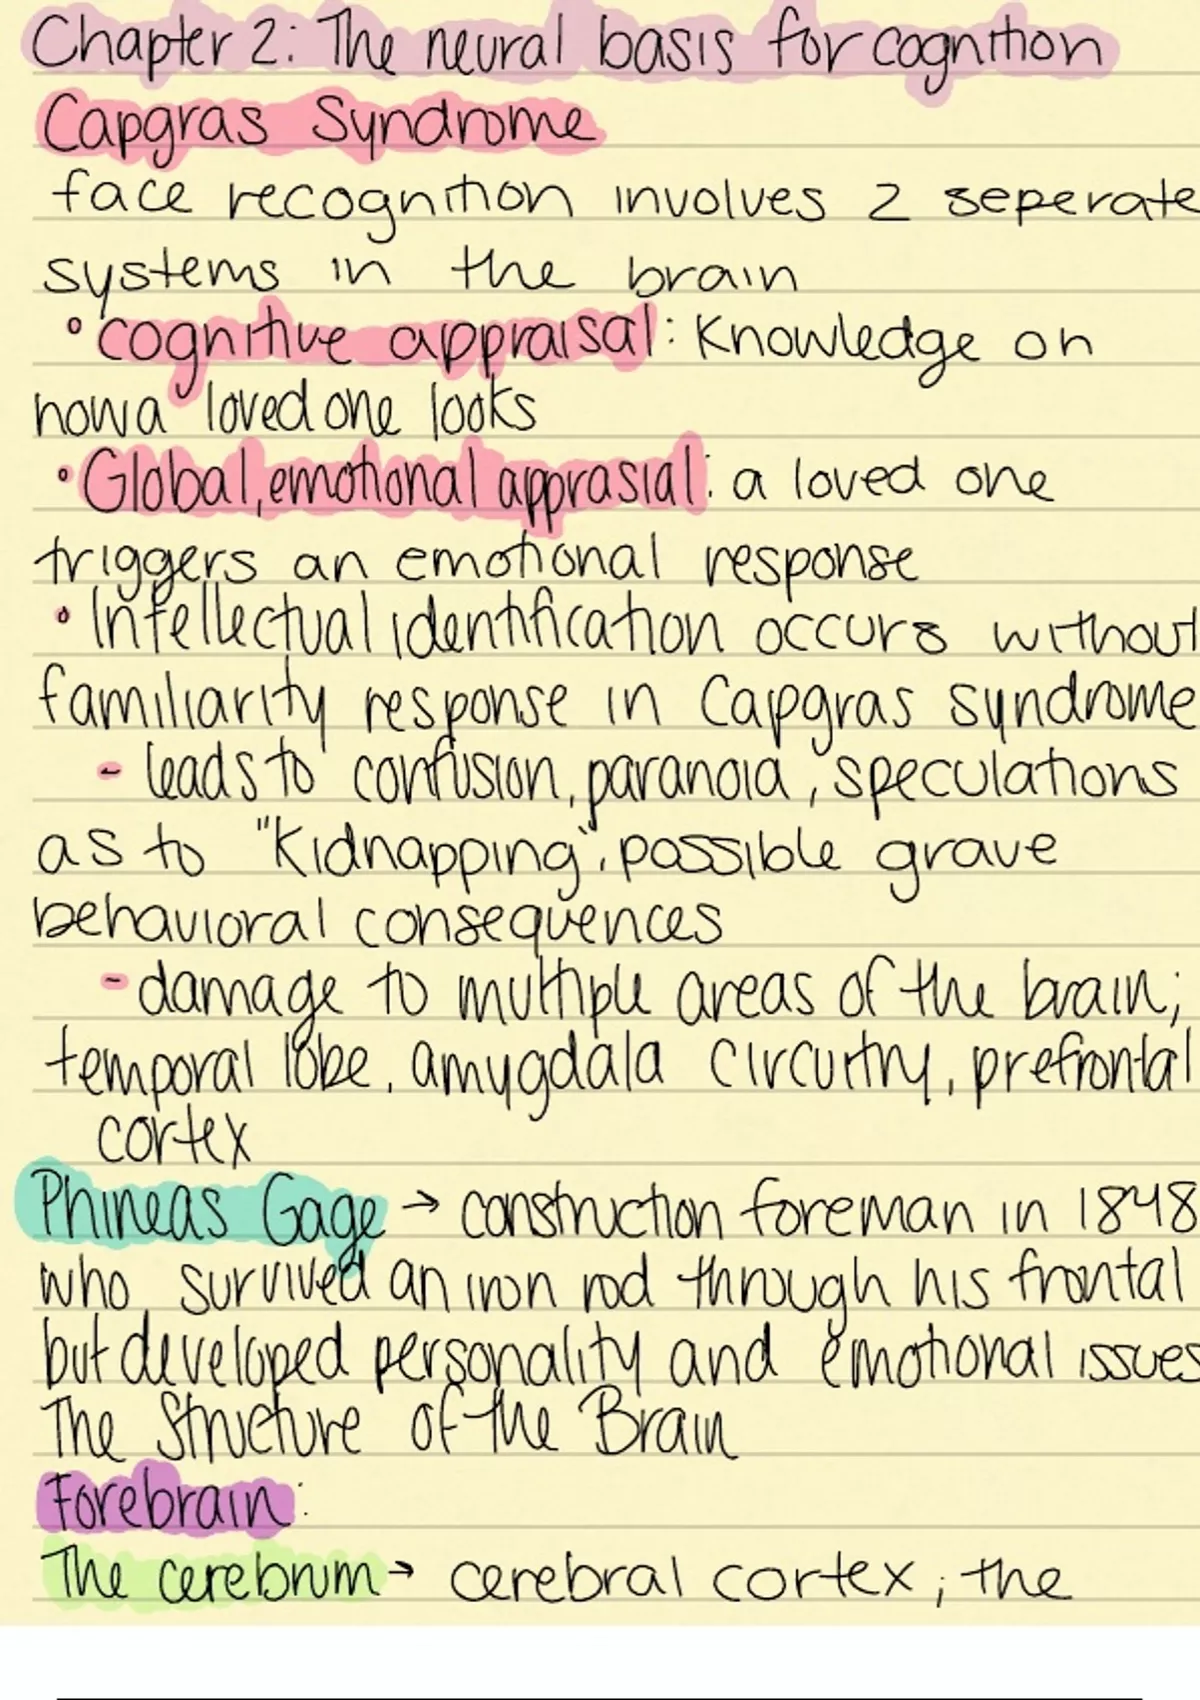 Chapter 2: The neural basis for cognition
Capgras Syndrome
face recognition involves 2 seperate
systems in the brain
• cognitive appraisal: Knowledge on
how a loved one looks
• Global, emotional apprasial: a loved one
triggers an emotional response
• Intellectual identification occurs without
familiarity response in Capgras syndrome
- leads to confusion, paranoia, speculations
as to "Kidnapping", possible grave
behavioral consequences
- damage to multiple areas of the brain;
temporal lobe, amygdala circuitry, prefrontal
cortex
Phineas Gage → construction foreman in 1848
who survived an iron rod through his frontal
but developed personality and emotional issues
The Structure of the Brain
Forebrain:
The cerebrum → cerebral cortex, the